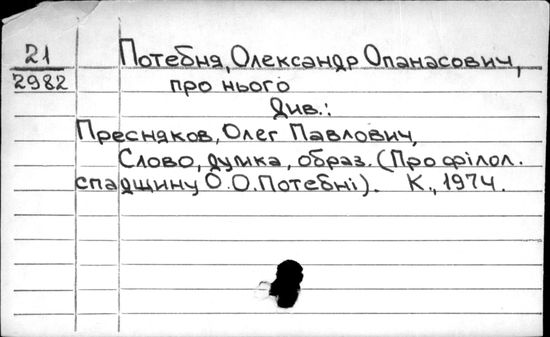 21
2982
Потебня, Олександр Опанасович,
про нього
Див.:
Пресняков, Олег Павлович,
Слово, думка, образ. (Про філол.
спадщину О.О.Потебні). К., 1974.